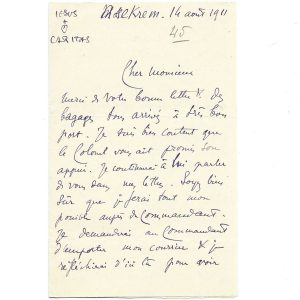 IESUS
CARITAS
Asekrem. 14 août 1911
45
Cher Monsieur
Merci de votre bonne lettre & des
bagages tous arrivés à très bon
port. Je suis bien content que
le Colonel vous ait promis son
appui. Je continuerai à lui parler
de vous dans mes lettres. Soyez bien
sûr que je ferai tout mon
possible auprès du Commandant.
Je demanderai au Commandant
d'emporter mon courrier & je
réfléchirai d'ici là pour avoir